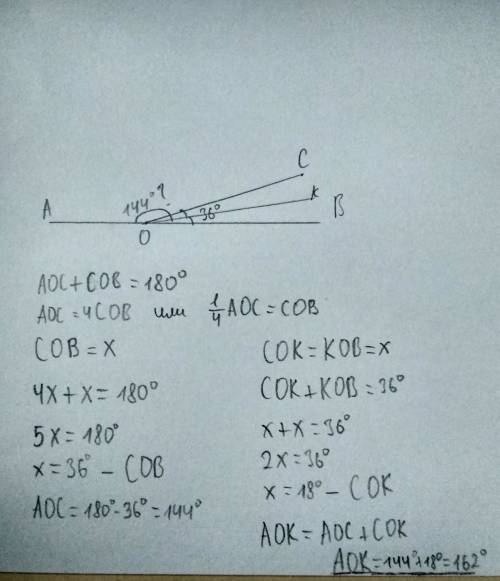 C
K
A
144° ?
36°
B
O
AOC+COB=180°
AOC=4COB или 1/4 AOC=COB
COB=x
4x+x=180°
5x=180°
x=36° - COB
AOC=180°-36°=144°
COK=KOB=x
COK+KOB=36°
x+x=36°
2x=36°
x=18° - COK
AOK=AOC+COK
AOK=144°+18°=162°